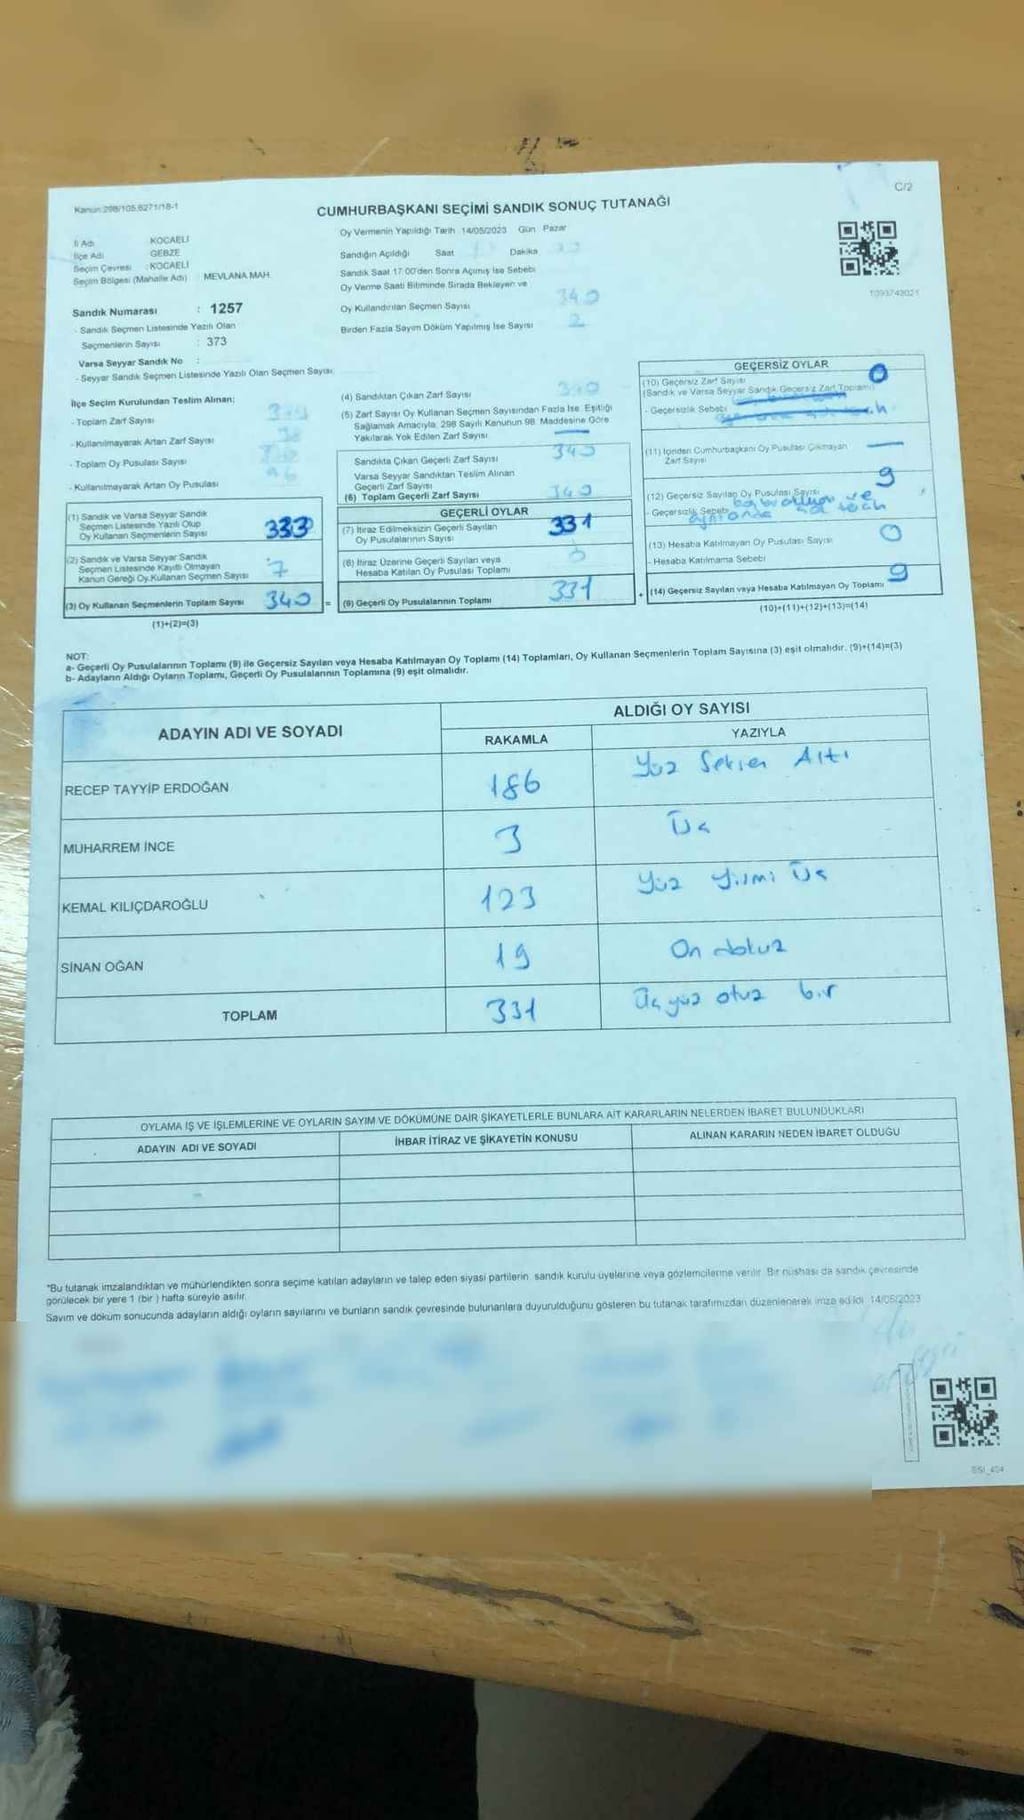 Kanun:298/105,6271/18-1
C/2
CUMHURBAŞKANI SEÇİMİ SANDIK SONUÇ TUTANAĞI
İl Adı KOCAELİ
İlçe Adı GEBZE
Seçim Çevresi : KOCAELİ
Seçim Bölgesi (Mahalle Adı) : MEVLANA MAH.
Sandık Numarası : 1257
- Sandık Seçmen Listesinde Yazılı Olan
Seçmenlerin Sayısı : 373
Varsa Seyyar Sandık No :
- Seyyar Sandık Seçmen Listesinde Yazılı Olan Seçmen Sayısı
Oy Vermenin Yapıldığı Tarih 14/05/2023 Gün Pazar
Sandığın Açıldığı Saat Dakika
Sandık Saat 17:00'den Sonra Açımış İse Sebebi
Oy Verme Saati Bitiminde Sırada Bekleyen ve
Oy Kullandırılan Seçmen Sayısı 340
Birden Fazla Sayım Döküm Yapılmış İse Sayısı 2
T093743021
İlçe Seçim Kurulundan Teslim Alınan:
- Toplam Zarf Sayısı
- Kullanılmayarak Artan Zarf Sayısı
- Toplam Oy Pusulası Sayısı
- Kullanılmayarak Artan Oy Pusulası
(1) Sandık ve Varsa Seyyar Sandık
Seçmen Listesinde Yazılı Olup
Oy Kullanan Seçmenlerin Sayısı 333
(2) Sandık ve Varsa Seyyar Sandık
Seçmen Listesinde Kayıtlı Olmayan
Kanun Gereği Oy Kullanan Seçmen Sayısı 7
(3) Oy Kullanan Seçmenlerin Toplam Sayısı 340 =
(1)+(2)=(3)
(4) Sandıktan Çıkan Zarf Sayısı 340
(5) Zarf Sayısı Oy Kullanan Seçmen Sayısından Fazla İse, Eşitliği
Sağlamak Amacıyla, 298 Sayılı Kanunun 98. Maddesine Göre
Yakılarak Yok Edilen Zarf Sayısı —
Sandıkta Çıkan Geçerli Zarf Sayısı 340
Varsa Seyyar Sandıktan Teslim Alınan
Geçerli Zarf Sayısı
(6) Toplam Geçerli Zarf Sayısı 340
GEÇERLİ OYLAR
(7) İtiraz Edilmeksizin Geçerli Sayılan
Oy Pusulalarının Sayısı 331
(8) İtiraz Üzerine Geçerli Sayılan veya
Hesaba Katılan Oy Pusulası Toplamı 0
(9) Geçerli Oy Pusulalarının Toplamı 331 +
GEÇERSİZ OYLAR
(10) Geçersiz Zarf Sayısı 0
(Sandık ve Varsa Seyyar Sandık Geçersiz Zarf Toplamı)
- Geçersizlik Sebebi
(11) İçinden Cumhurbaşkanı Oy Pusulası Çıkmayan
Zarf Sayısı —
(12) Geçersiz Sayılan Oy Pusulası Sayısı 9
- Geçersizlik Sebebi
(13) Hesaba Katılmayan Oy Pusulası Sayısı 0
- Hesaba Katılmama Sebebi
(14) Geçersiz Sayılan veya Hesaba Katılmayan Oy Toplamı 9
(10)+(11)+(12)+(13)=(14)
NOT:
a- Geçerli Oy Pusulalarının Toplamı (9) ile Geçersiz Sayılan veya Hesaba Katılmayan Oy Toplamı (14) Toplamları, Oy Kullanan Seçmenlerin Toplam Sayısına (3) eşit olmalıdır. (9)+(14)=(3)
b- Adayların Aldığı Oyların Toplamı, Geçerli Oy Pusulalarının Toplamına (9) eşit olmalıdır.
ADAYIN ADI VE SOYADI ALDIĞI OY SAYISI
RAKAMLA YAZIYLA
RECEP TAYYİP ERDOĞAN 186 Yüz Seksen Altı
MUHARREM İNCE 3 Üç
KEMAL KILIÇDAROĞLU 123 Yüz Yirmi Üç
SİNAN OĞAN 19 On dokuz
TOPLAM 331 Üçyüz otuz bir
OYLAMA İŞ VE İŞLEMLERİNE VE OYLARIN SAYIM VE DÖKÜMÜNE DAİR ŞİKAYETLERLE BUNLARA AİT KARARLARIN NELERDEN İBARET BULUNDUKLARI
ADAYIN ADI VE SOYADI İHBAR İTİRAZ VE ŞİKAYETİN KONUSU ALINAN KARARIN NEDEN İBARET OLDUĞU
*Bu tutanak imzalandıktan ve mühürlendikten sonra seçime katılan adayların ve talep eden siyasi partilerin sandık kurulu üyelerine veya gözlemcilerine verilir. Bir nüshası da sandık çevresinde
görülecek bir yere 1 (bir ) hafta süreyle asılır.
Sayım ve döküm sonucunda adayların aldığı oyların sayılarını ve bunların sandık çevresinde bulunanlara duyurulduğunu gösteren bu tutanak tarafımızdan düzenlenerek imza edildi. 14/05/2023